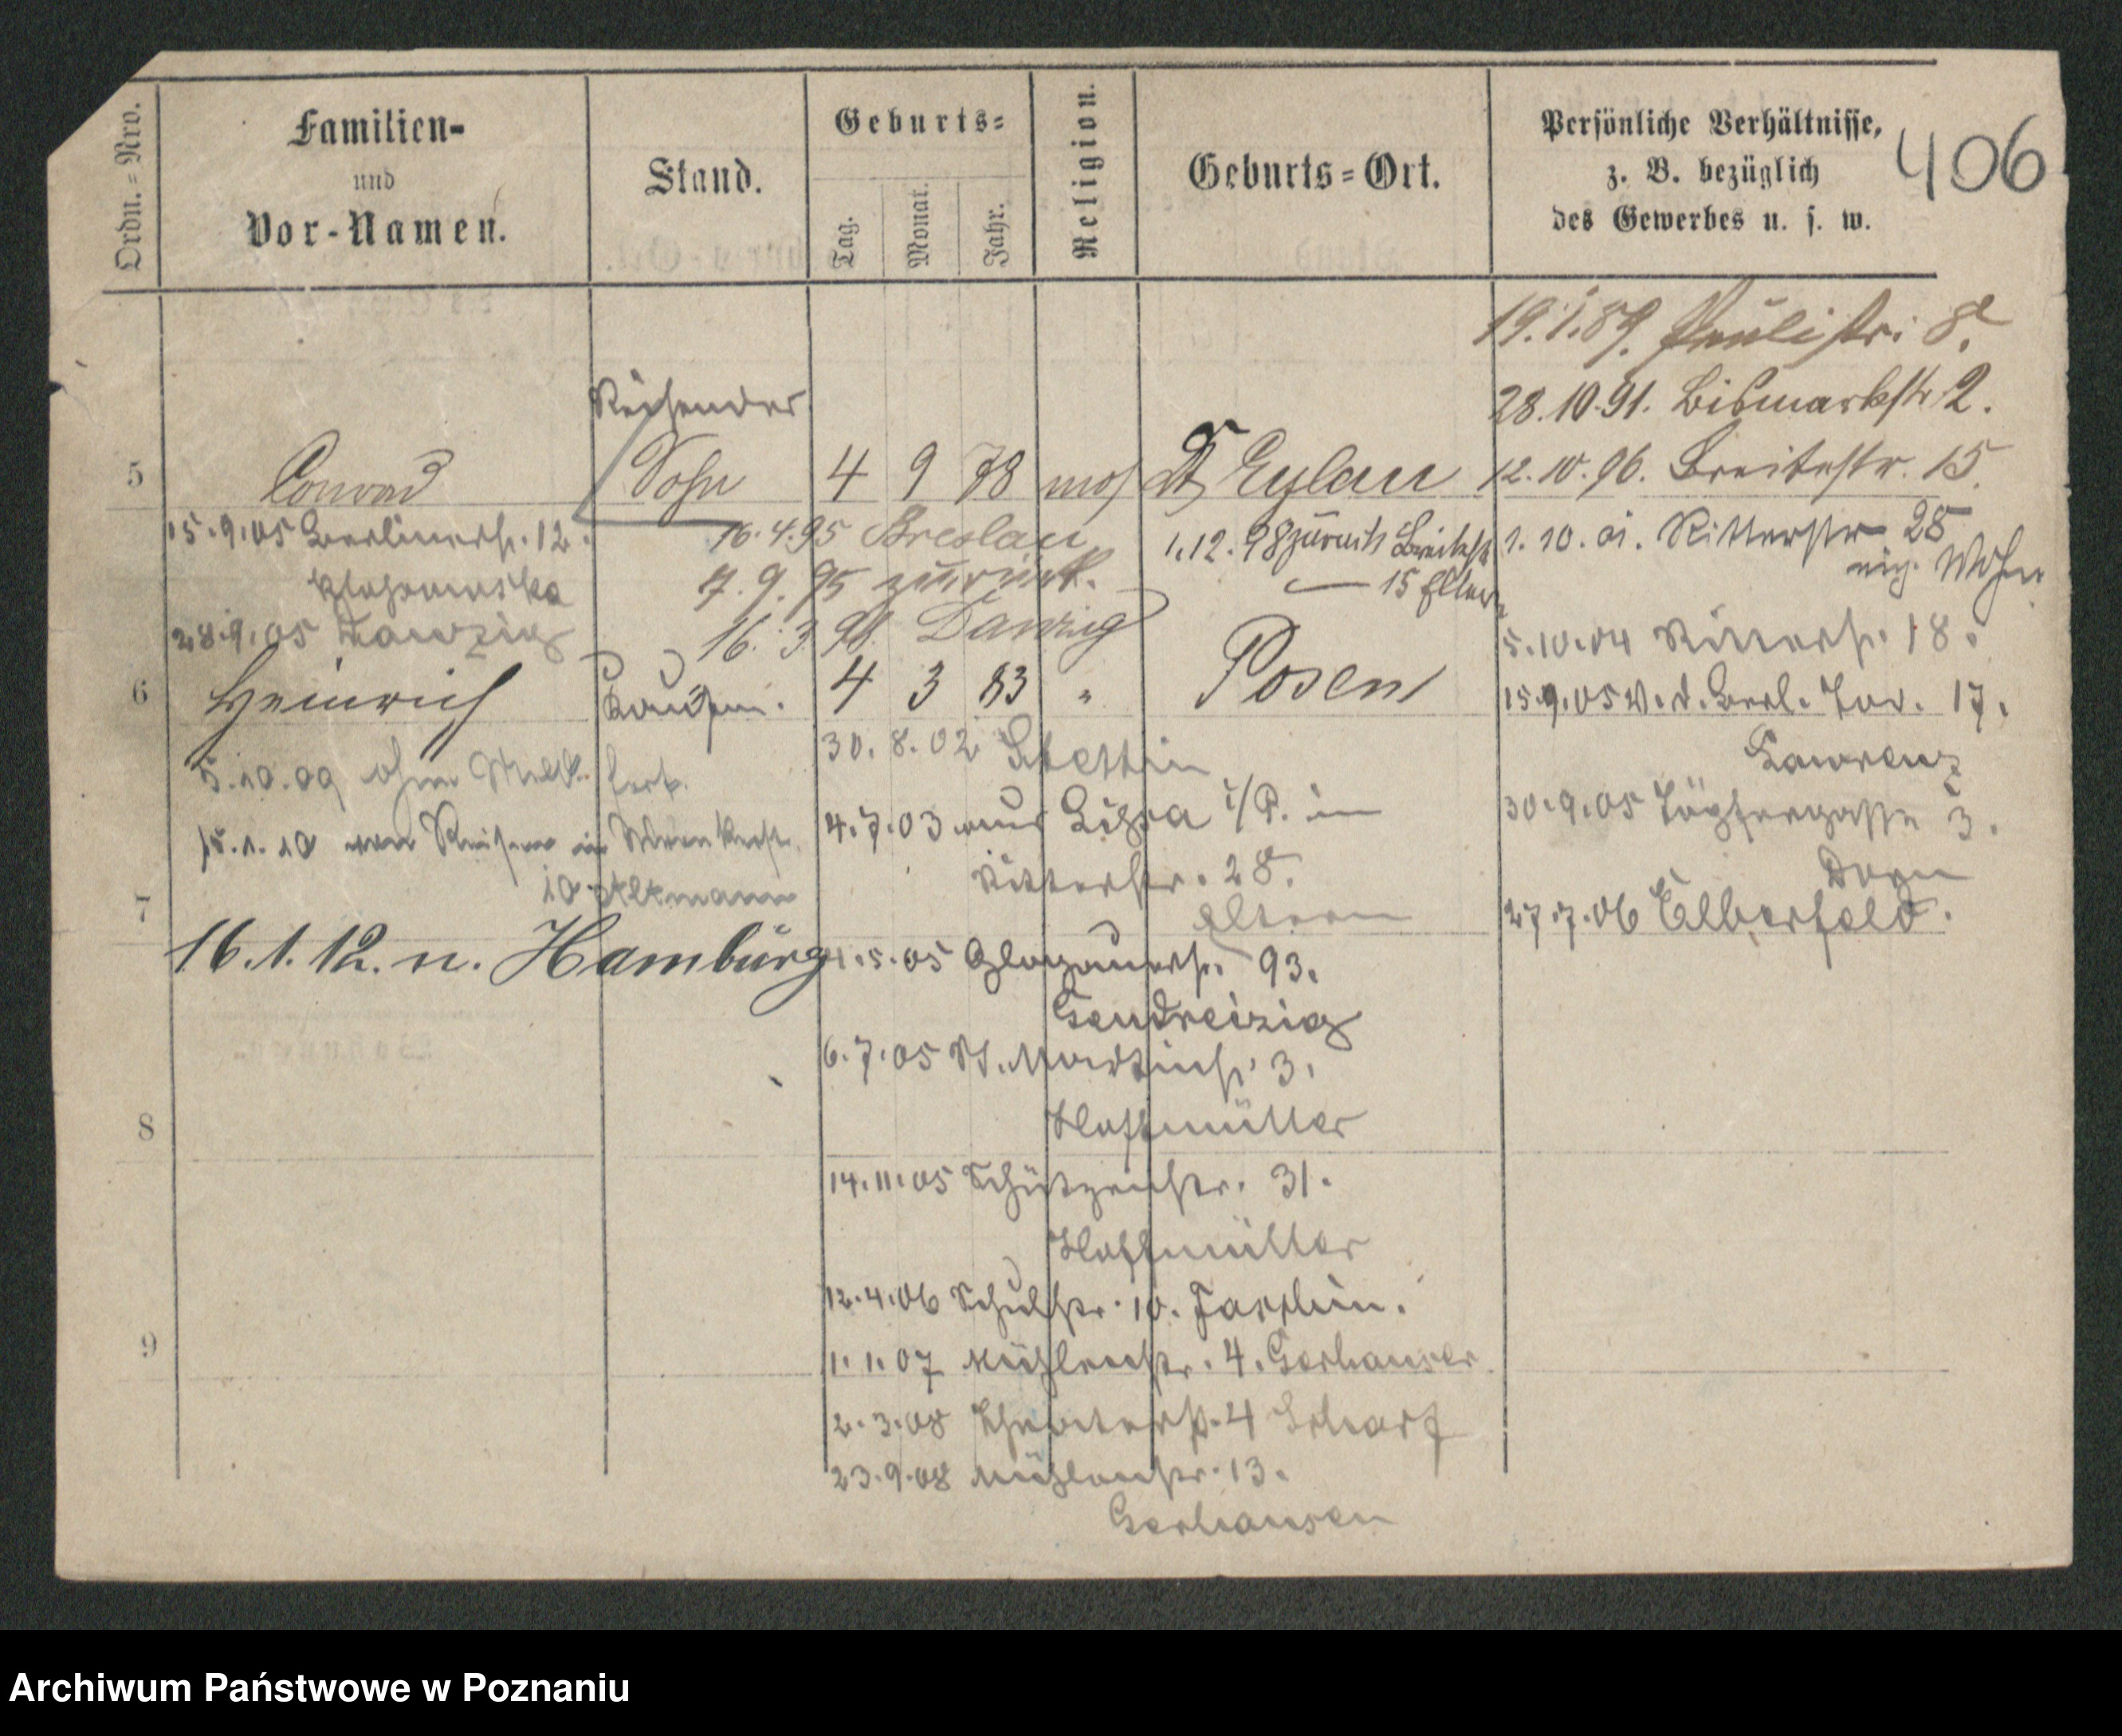 Ordn.-Nro.
Familien-
und
Vor-Namen.
Stand.
Geburts-
Tag.
Monat.
Jahr.
Religion.
Geburts-Ort.
Persönliche Verhältnisse,
z. B. bezüglich
des Gewerbes u. s. w.
406
19.1.89. Paulistr. 8.
28.10.91. Bismarkstr 2.
12.10.96. Breitestr. 15.
1.10.01. Ritterstr 28
eig. Wohn
5.10.04 Ritterstr. 18.
15.9.05 v. d. Berl. Tor. 17.
Lawrenz
30.9.05 3.
Dorn
27.7.06 Elberfeld.
Reisender
5 Conrad Sohn 4 9 78 mos Dt Eylau
15.9.05 Berlinerstr. 12.
28.9.05 Danzig
16.4.95 Breslau
7.9.95 zurück.
16.3.98. Danzig
1.12.98 zurück Breitestr
15 Eltern
6 Heinrich Kaufm. 4 3 83 " Posen
5.10.09 ohne
15.1.10 von Reisen in
10 Altmann
7
16.1.12. n. Hamburg
30.8.02 Stettin
4.7.03 aus Lissa i/P. in
Ritterstr. 28.
Eltern
1.5.05 Glogauerstr. 93.
Gendreizig
6.7.05 St. Martinstr. 3.
Hoffmüller
8
14.11.05 Schützenstr. 31.
Hoffmüller
12.4.06 Schulstr. 10.
9
1.1.07 Mühlenstr. 4. Gerhauser
2.3.08 Theaterstr. 4 Scharf
23.9.08 Mühlenstr. 13.
Gerhausen
Archiwum Państwowe w Poznaniu